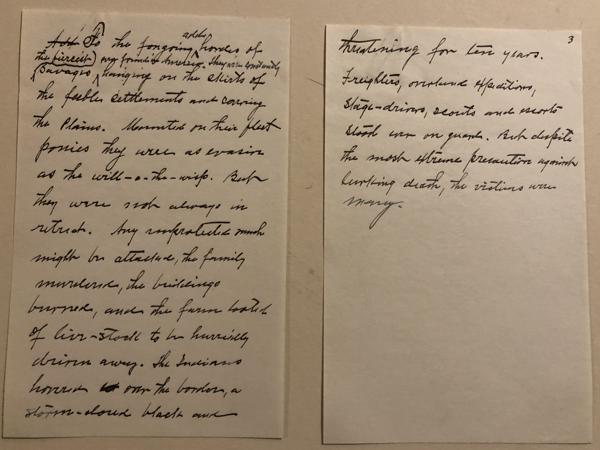 To the foregoing add hordes of
the fiercest savages ever found in America. They were constantly
hanging on the skirts of
the feeble settlements and covering
the Plains. Mounted on their fleet
ponies they were as evasive
as the will-o-the-wisp. But
they were not always in
retreat. Any unprotected ranch
might be attacked, the family
murdered, the buildings
burned, and the farm looted
of live-stock to be hurriedly
driven away. The Indians
hovered over the border, a
storm-cloud black and
3
threatening for ten years.
Freighters, overland expeditions,
stage-drivers, scouts and escorts
stood ever on guard. But despite
the most extreme precaution against
lurking death, the victims were
many.